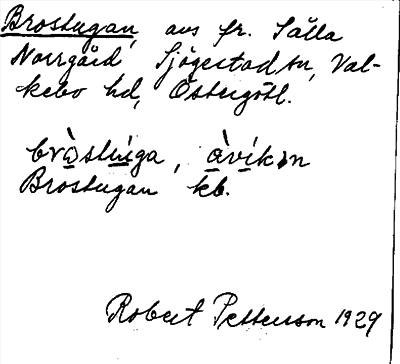 Brostugan, avs fr. Sålla
Norrgård Sjögestad sn, Val-
kebo hd, Östergötl.
bròstuga, àvíkən
Brostugan kb.
Robert Pettersson 1929